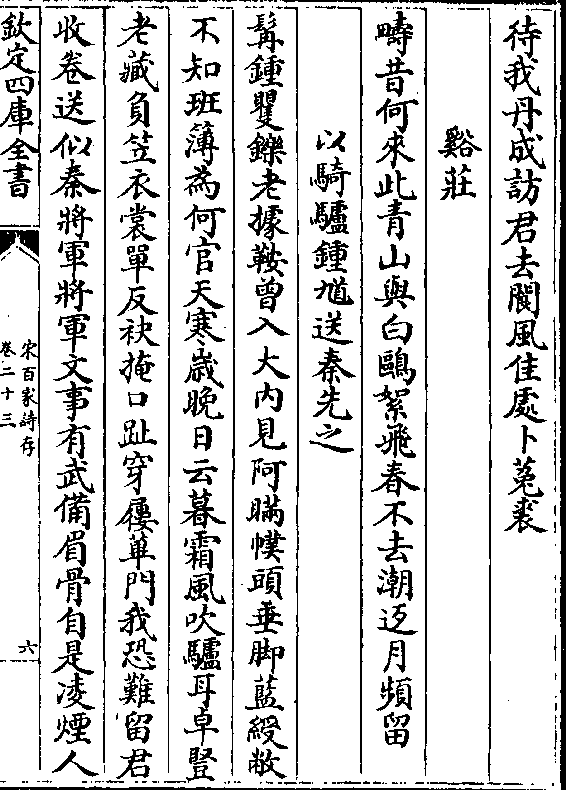 待我丹成訪君去閬風佳處卜菟裘
谿莊
疇昔何來此青山與白鷗絮飛春不去潮返月頻留
以騎驢鍾馗送秦先之
髯鍾矍鑠老據鞍曾入大内見阿瞞幞頭垂脚藍綬敝
不知班簿為何官天寒歲晚日云暮霜風吹驢耳卓豎
老藏負笠衣裳單反袂掩口趾穿屨蓽門我恐難留君
收卷送似秦將軍將軍文事有武備眉骨自是凌煙人
欽定四庫全書
宋百家詩存
卷二十三
六